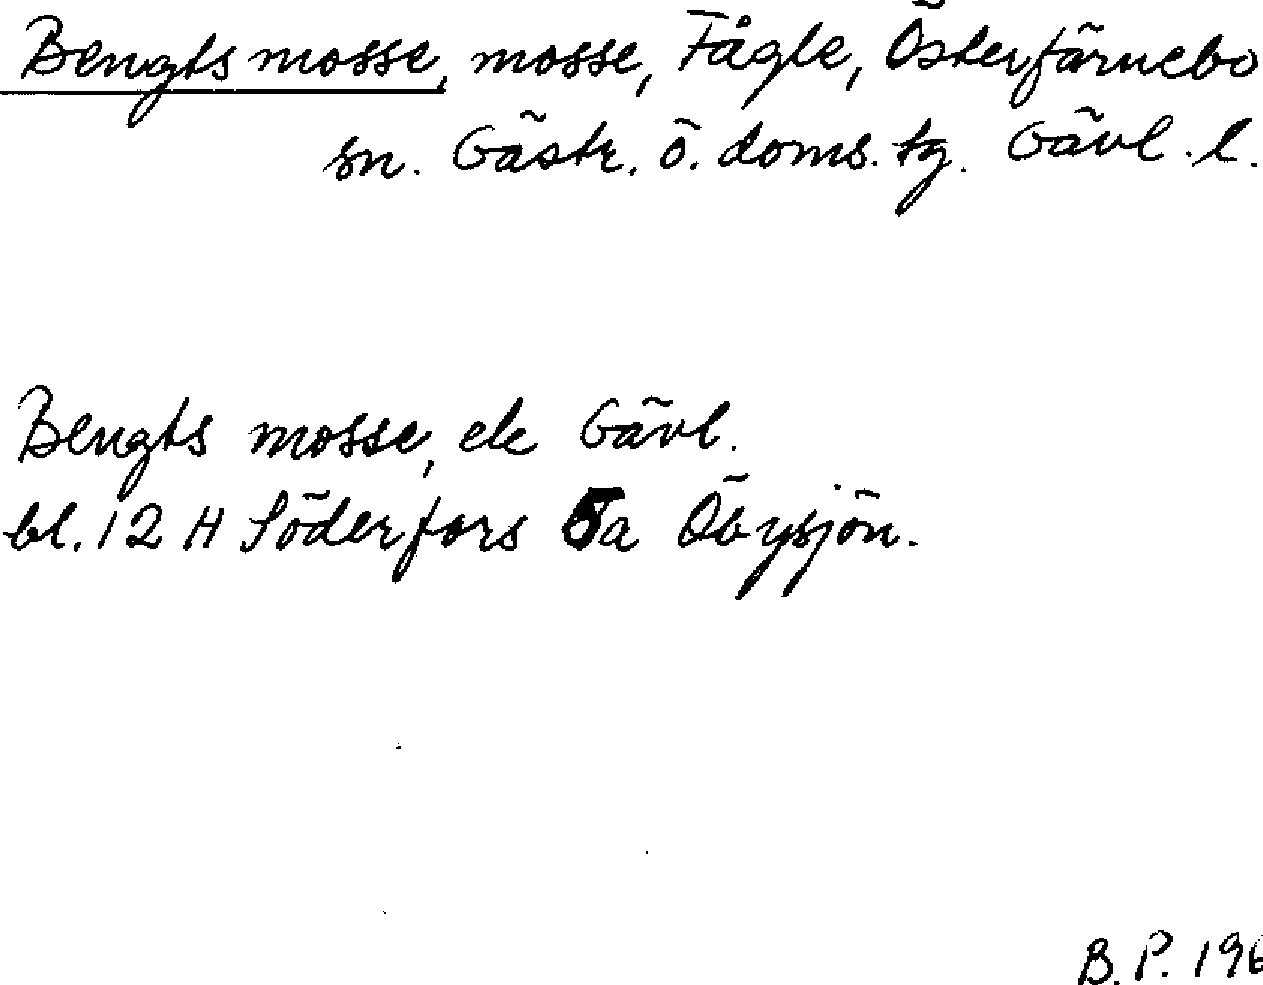 Bengtsmosse, mosse, Fågle, Österfärnebo
sn. Gästr. ö. doms. tg. Gävl. l.
Bengts mosse, ek Gävl.
bl. 12 H Söderfors 5a Öbysjön.
B. P. 196